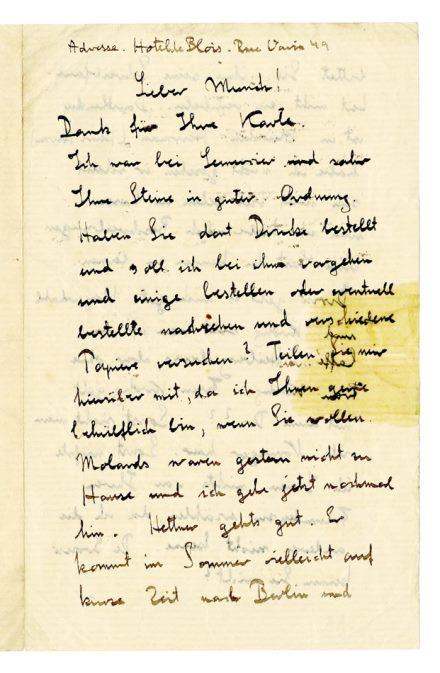 Adresse. Hotel de Blois. Rue Vavin 49
Lieber Munch!
Dank für Ihre Karte.
Ich war bei Lemercier und
Ihre Steine in guter Ordnung.
Haben Sie dort Drucke bestellt
und soll ich bei ihm vorgehen
und einige bestellen oder eventuell
bestellte nachsehen und verschiedene
Papiere versuchen? Teilen Sie mir
hierüber mit, da ich Ihnen gerne
behilflich bin, wenn Sie wollen.
Molards waren gestern nicht zu
Hause und ich gehe jetzt nochmal
hin. Hettner gehts gut. Er
kommt im Sommer vielleicht auf
kurze Zeit nach Berlin und